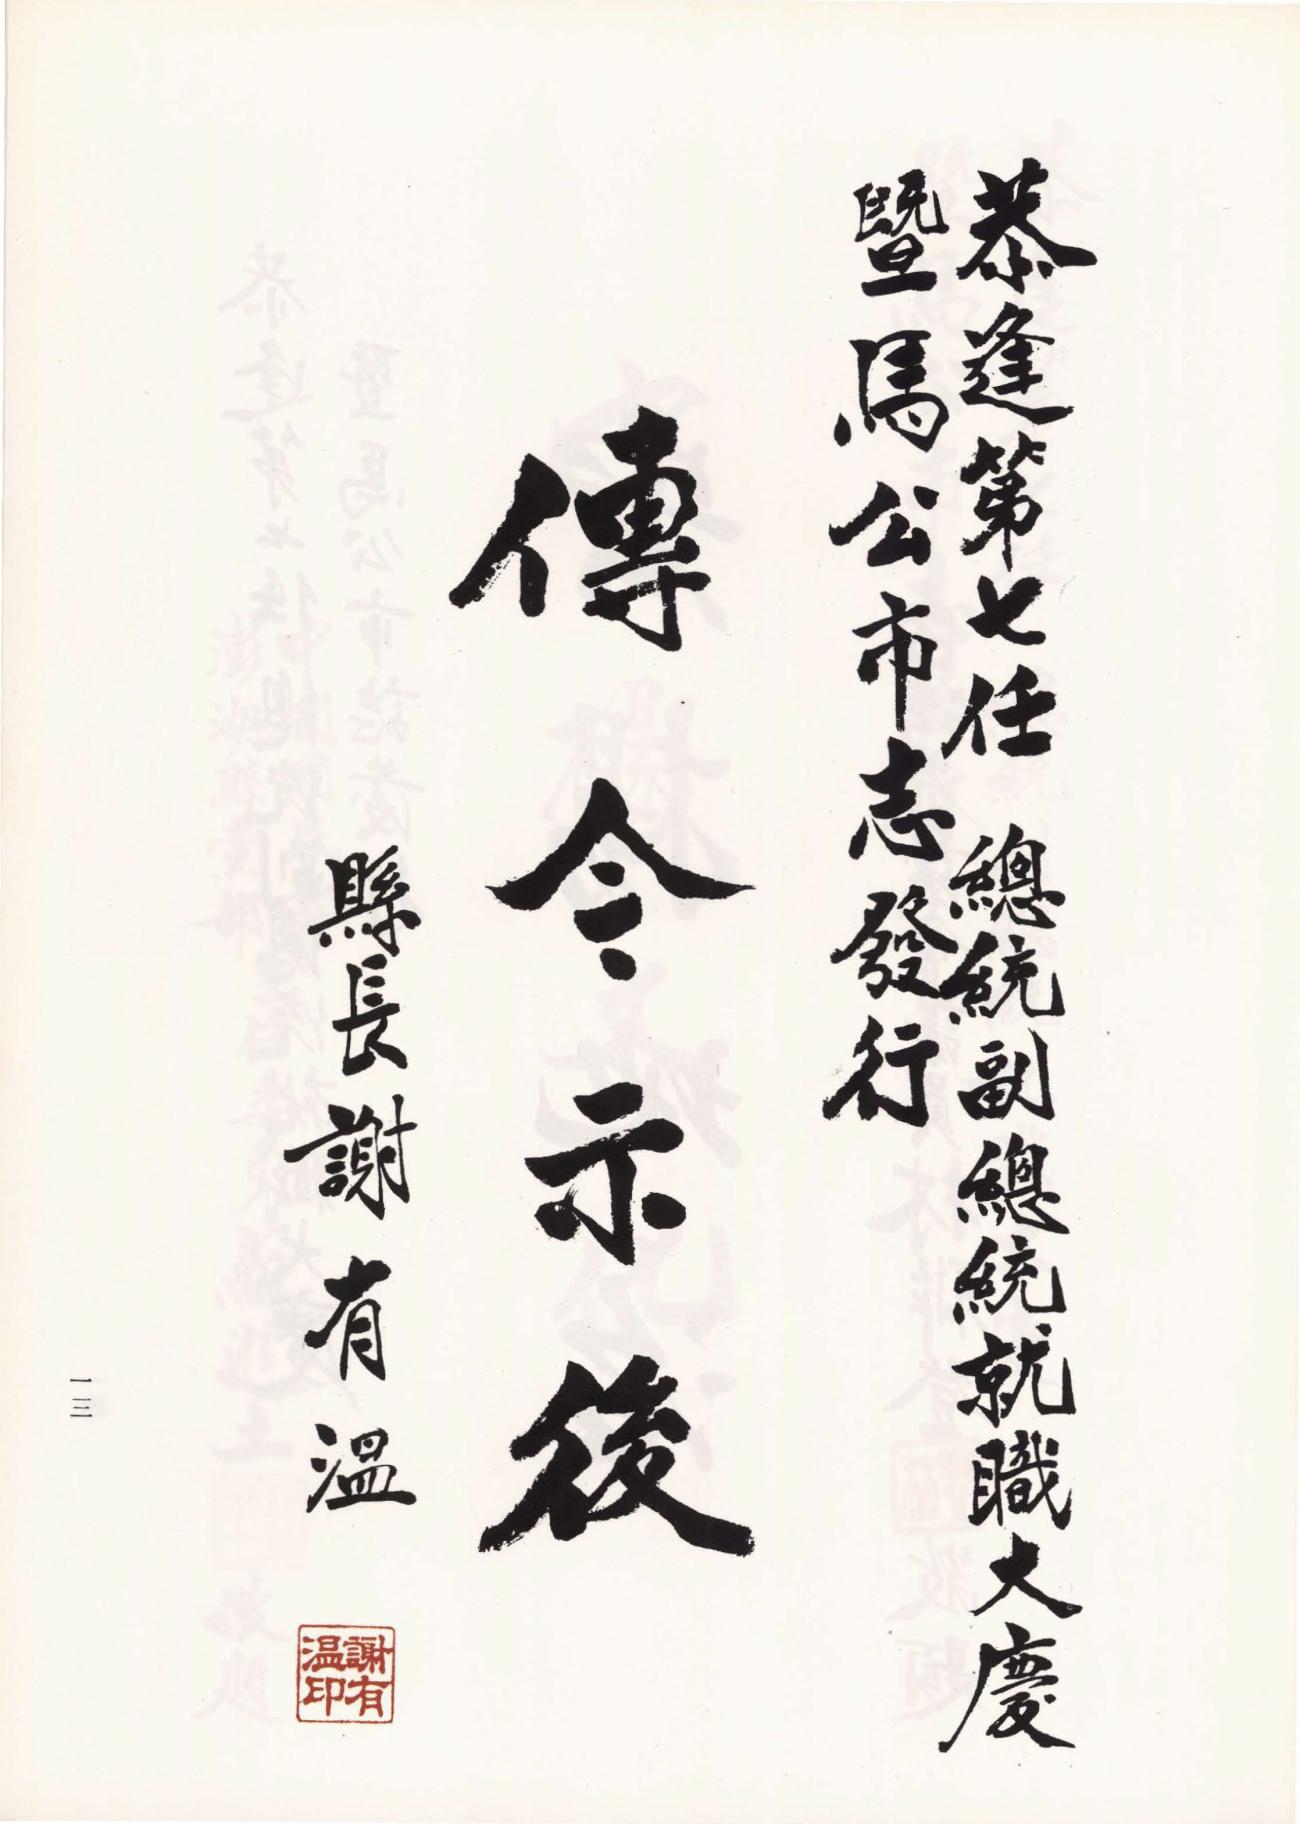 恭逢第七任　總統副總統就職大慶
暨馬公市志發行
傳令示後
縣長謝有溫
謝有
溫印
一三